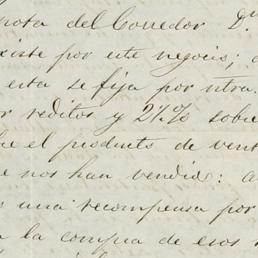 nota del Corredor D.
existe por este negocio;
esta se fija por ntra.
reditos y 2½% sobre
el producto de vent
e nos han vendido: a
una recompensa por
a la compra de esos